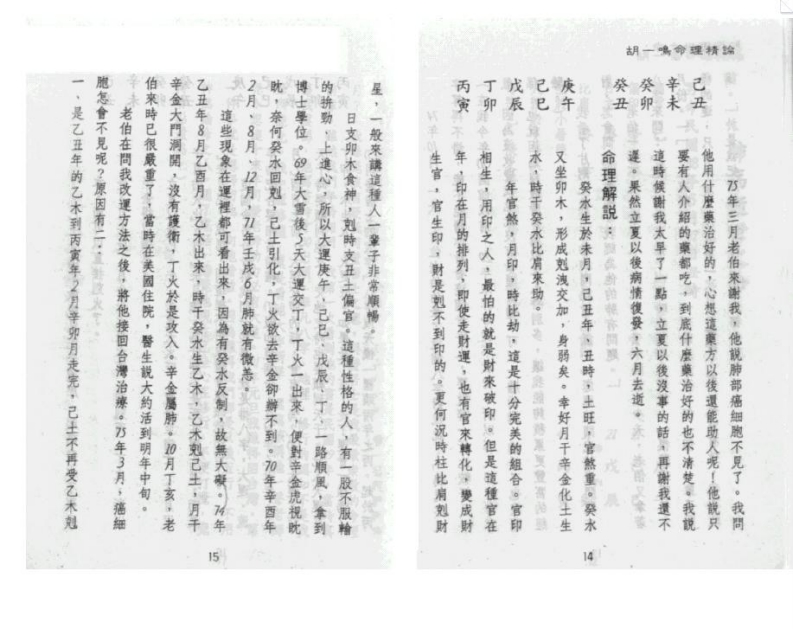 胡一鳴命理精論
己丑
辛未
癸卯
癸丑
庚午
己巳
戊辰
丁卯
丙寅
75年三月老伯來謝我，他說肺部癌細胞不見了。我問
他用什麼藥治好的，心想這藥方以後還能助人呢！他說只
要有人介紹的藥都吃，到底什麼藥治好的也不清楚。我說
這時候謝我太早了一點，立夏以後沒事的話，再謝我還不
遲。果然立夏以後病情復發，六月去逝。
命理解說：
癸水生於未月，己丑年，丑時，土旺，官煞重。癸水
又坐卯木，形成剋洩交加，身弱矣。幸好月干辛金化土生
水，時干癸水比肩來助。
年官煞，月印，時比劫，這是十分完美的組合。官印
相生，用印之人，最怕的就是財來破印。但是這種官在
年，印在月的排列，即使走財運，也有官來轉化，變成財
生官，官生印，財是剋不到印的。更何況時柱比肩剋財
14
星，一般來講這種人一輩子非常順暢。
日支卯木食神，剋時支丑土偏官。這種性格的人，有一股不服輸
的拼勁，上進心，所以大運庚午、己巳、戊辰、丁，一路順風，拿到
博士學位。69年大雪後5天大運交丁，丁火一出來，便對辛金虎視眈
眈，奈何癸水回剋，己土引化，丁火欲去辛金卻辦不到。70年辛酉年
2月、8月、12月，71年壬戌6月肺就有微恙。
這些現象在運裡都可看出來，因為有癸水反制，故無大礙。74年
乙丑年8月乙酉月，乙木出來，時干癸水生乙木，乙木剋己土，月干
辛金大門洞開，沒有護衛，丁火於是攻入。辛金屬肺。10月丁亥，老
伯來時已很嚴重了，當時在美國住院，醫生說大約活到明年中旬。
老伯在問我改運方法之後，將他接回台灣治療。75年3月，癌細
胞怎會不見呢？原因有二：
一、是乙丑年的乙木到丙寅年2月辛卯月走完，己土不再受乙木剋
15